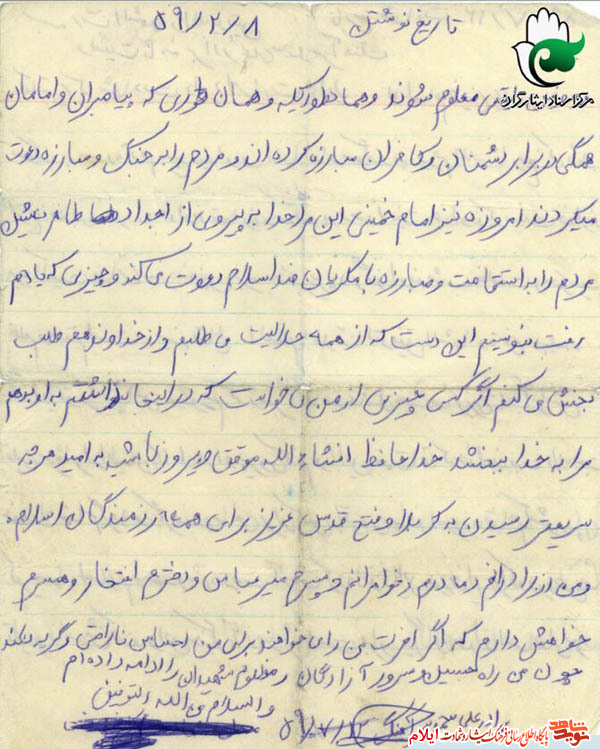 تاریخ نوشتن ۵۹/۲/۸
مرکز اسناد ایثارگران
معلوم شوند و همانطوریکه و همان طوری که پیامبران و امامان
همگی در برابر دشمنان و کافران مبارزه کرده اند و مردم را به جنگ و مبارزه دعوت
میکردند امروزه نیز امام خمینی این مرد خدا به پیروی از اجداد طاهرینش
مردم را به استقامت و مبارزه با منکران ضد اسلام دعوت می کند و چیزی که یادم
رفت بنویسم این دست که از همه حلالیت می طلبم و از خداوند هم طلب
بخشش می کنم اگر کسی چیزی از من خواست که در اینجا نداشتم به او بدهم
مرا به خدا ببخشد خدا حافظ انشاء الله موفق و پیروز باشید به امید هر چه
سریعتر رسیدن به کربلا و فتح قدس عزیز برای همه رزمندگان اسلام.
و من از برادرانم و مادرم و خواهرانم و پسرم میرعباس و دخترم افتخار و همسرم
خواهش دارم که اگر آخرت من را می خواهند برای من احساس ناراحتی و گریه نکنند
چون من راه حسین و سرور آزادگان و مظلوم شهیدان را ادامه داده ام
والسلام من الله التوفیق
علی
پایگاه اطلاع رسانی فرهنگ ایثار و شهادت ایلام
نوید شاهد